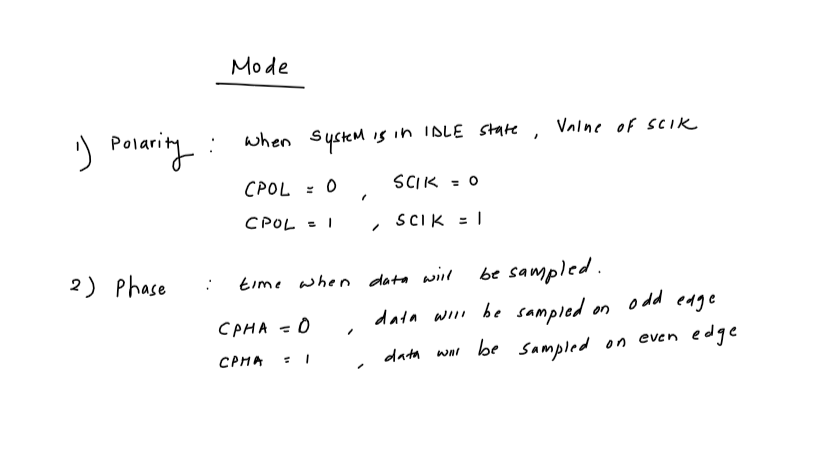 Mode
1) Polarity : when system is in IDLE state , Value of SClK
CPOL = 0 , SClK = 0
CPOL = 1 , SClK = 1
2) Phase : time when data will be sampled.
CPHA = 0 , data will be sampled on odd edge
CPHA = 1 , data will be sampled on even edge